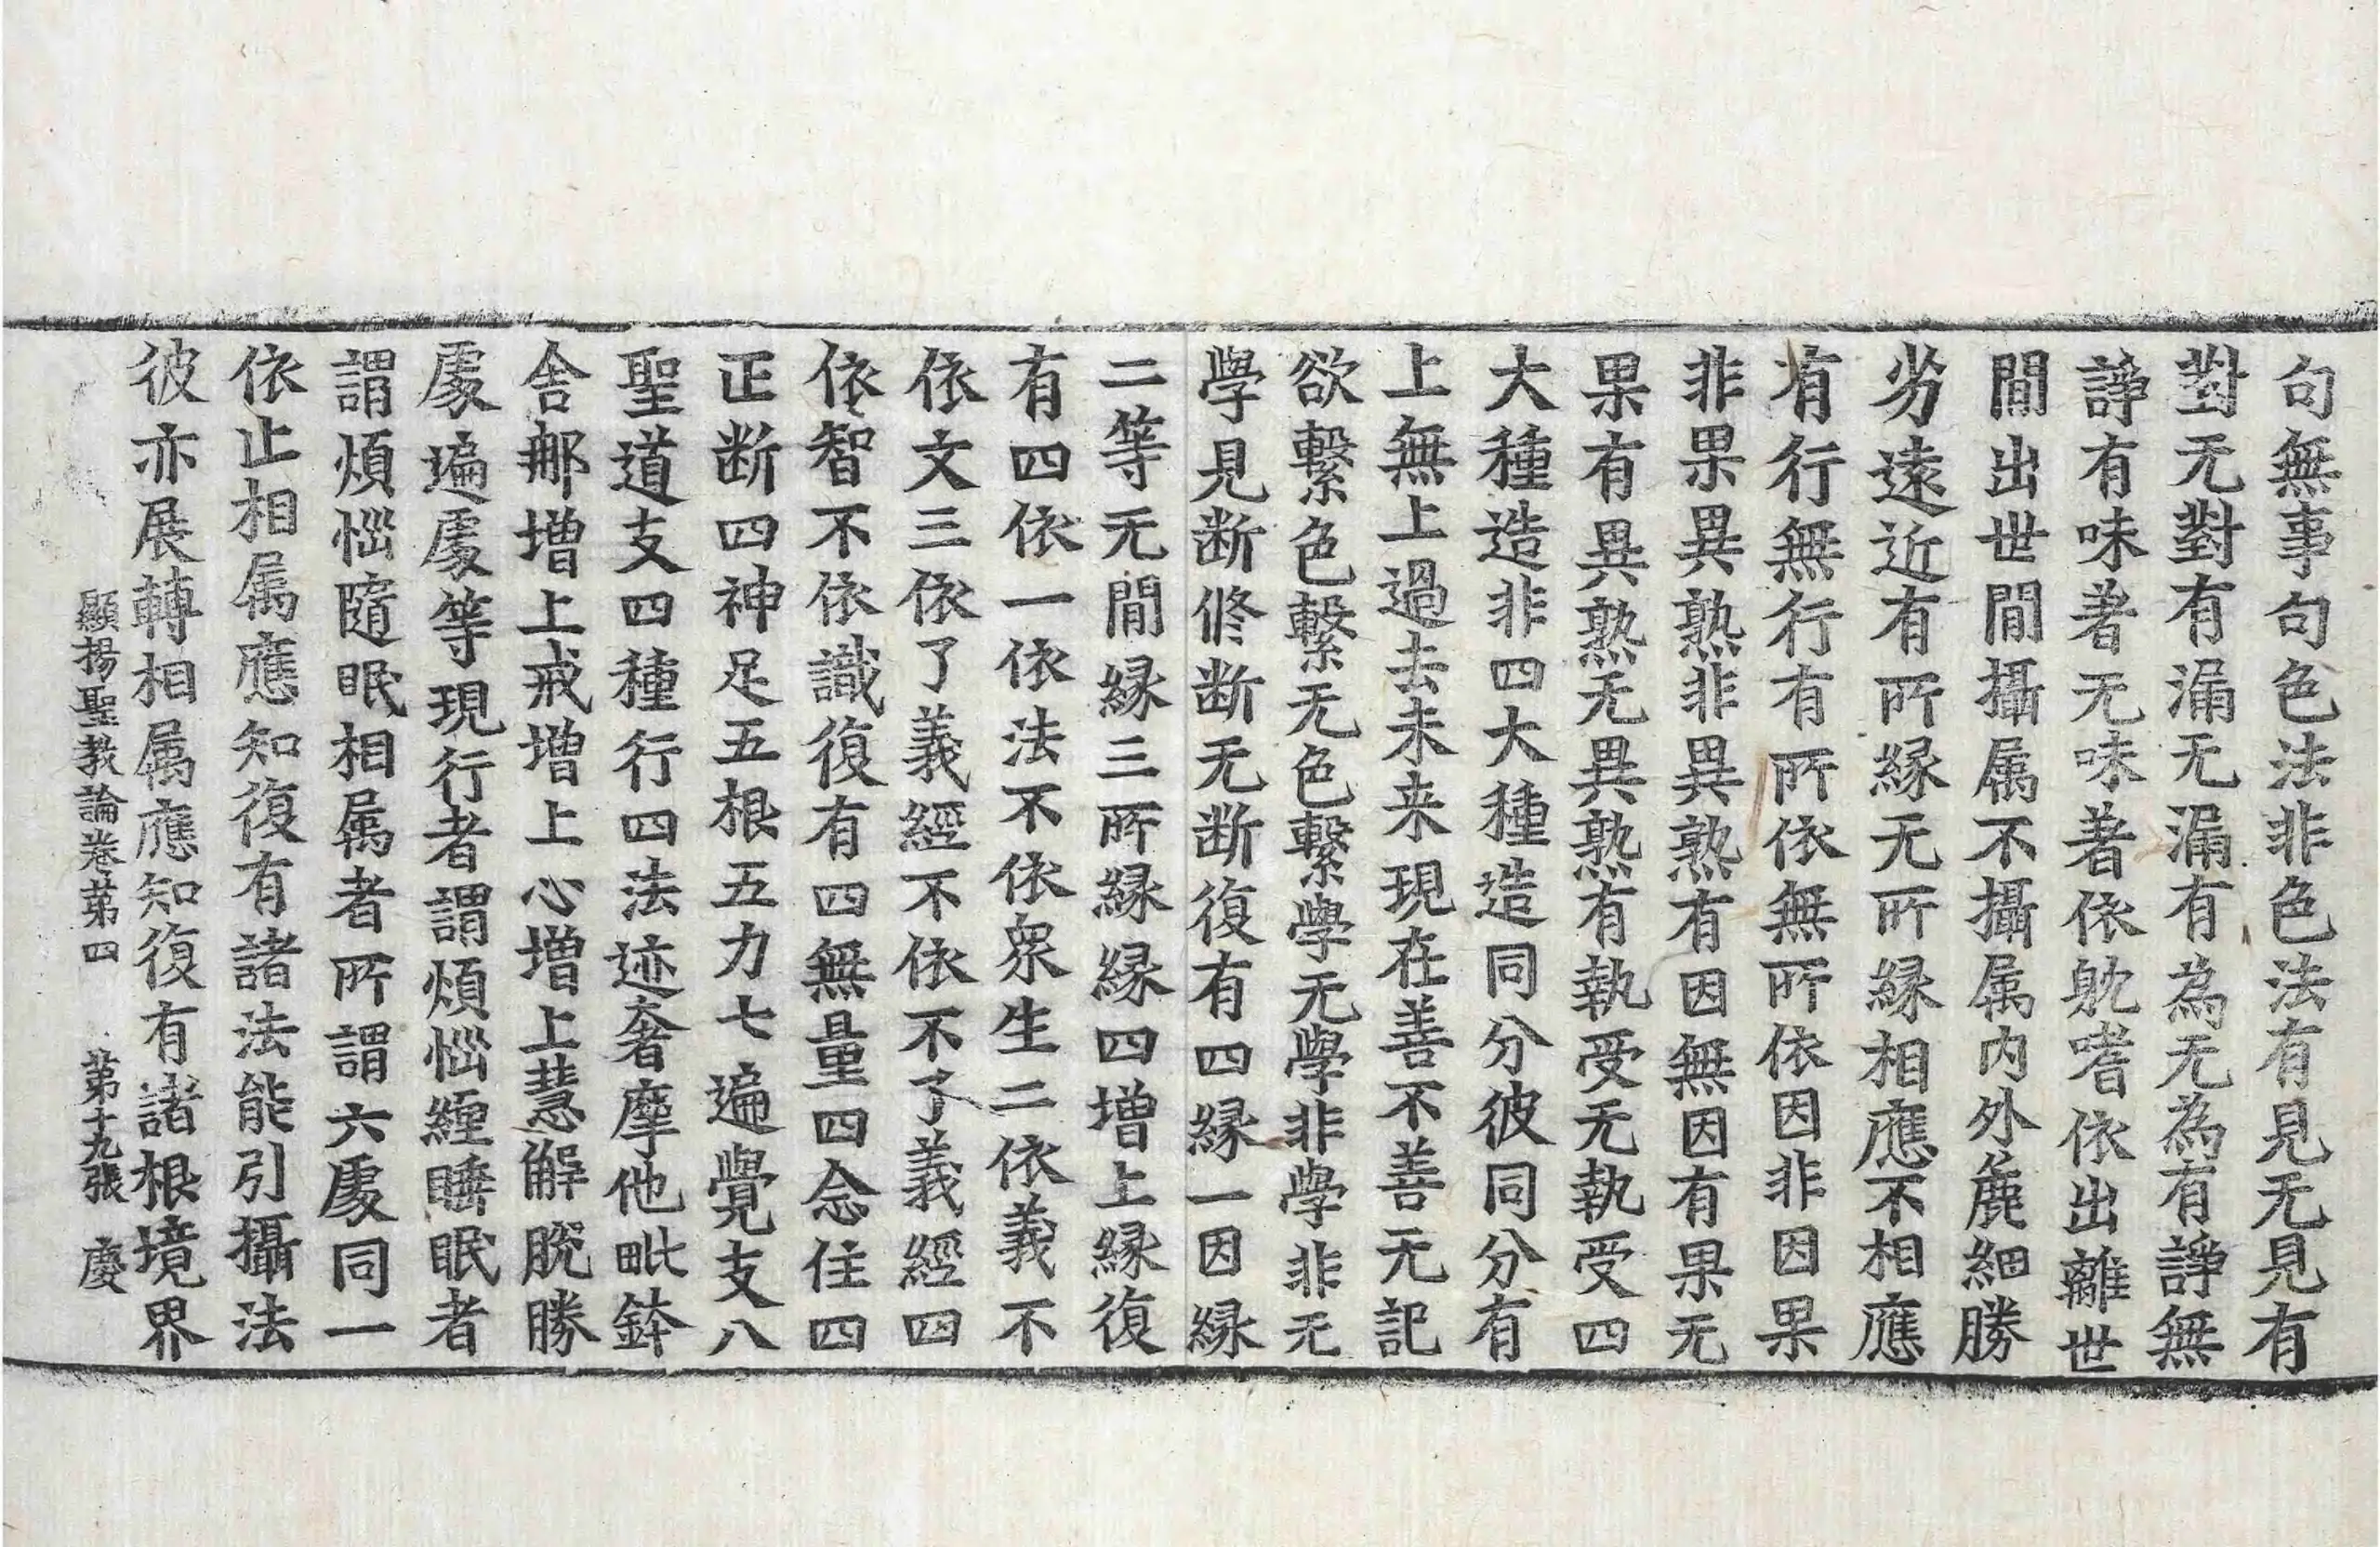 句無事句句色法非色法有見无見有
對无對有漏无漏有為无為有諍無
諍有味著无味著依躭嗜依出離世
間出世間攝属不攝属内外麁細勝
劣遠近有所縁无所縁相應不相應
有行無行有所依無所依因非因果
非果異熟非異熟有因無因有果无
果有異熟无異熟有執受无執受四
大種造非四大種造同分彼同分有
上無上過去未来現在善不善无記
欲繫色繫无色繫學无學非學非无
學見断修断无断復有四縁一因縁
二等无間縁三所縁縁四增上縁復
有四依一依法不依衆生二依義不
依文三依了義經不依不了義經四
依智不依識復有四無量四念住四
正断四神足五根五力七遍覺支八
聖道支四種行四法迹奢摩他毗鉢
舍那增上戒增上心增上慧解脫勝
處遍處等現行者謂煩惱纏睡眠者
謂煩惱隨眠相属者所謂六處同一
依止相属應知復有諸法能引攝法
彼亦展轉相属應知復有諸根境界
顯揚聖教論卷第四 第十九張 慶